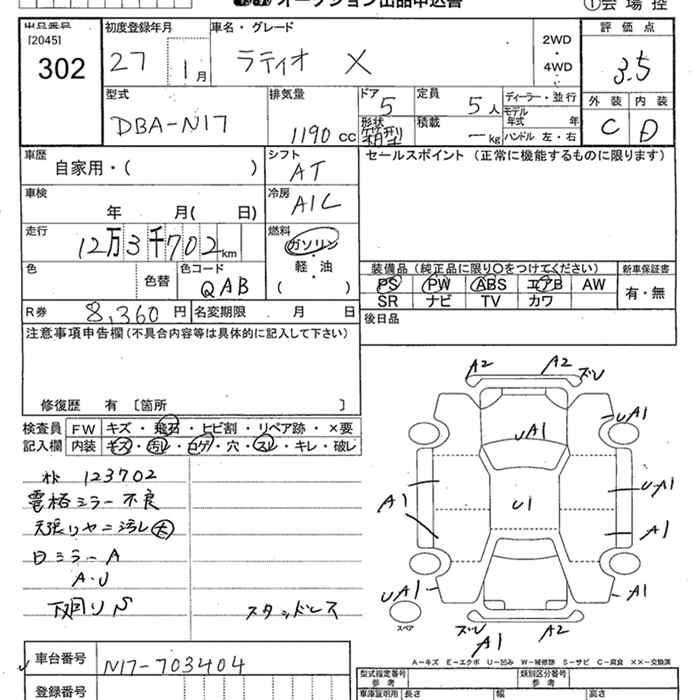 オークション出品申込書
①会場控
出品番号 初度登録年月 車名・グレード 評価点
[2045] 2WD
302 27 1月 ラティオ X ・ 3.5
4WD
型式 排気量 ドア 定員 ディーラー・並行 外装 内装
DBA-N17 1190cc 5 5人 モデル年式 年 C D
形状 箱型 積載 —kg ハンドル 左・右
車歴 シフト セールスポイント(正常に機能するものに限ります)
自家用・( ) AT
車検 冷房
年 月( 日) A/C
走行 燃料
12万3千702km ガソリン
・
色 色替 色コード 軽・油
QAB ・
( )
装備品(純正品に限り○をつけてください) 新車保証書
PS PW ABS エアB AW 有・無
SR ナビ TV カワ
R券 8,360円 名変期限 月 日 後日品
注意事項申告欄(不具合内容等は具体的に記入して下さい)
修復歴 有 〔箇所 〕
検査員 FW キズ・飛石・ヒビ割・リペア跡・×要
記入欄 内装 キズ・汚レ・コゲ・穴・スレ・キレ・破レ
123702
電格ミラー不良
天張リヤニ汚レ大
日ミラーA
A・U
下廻りS スタッドレス
A2 A2 ズレ
UA1
UA1
A1 U1 UA1
A1
UA1 A1
スペア
ズレ A1 A2
A-キズ E-エクボ U-凹み W-補修跡 S-サビ C-腐食 ××-交換済
車台番号 N17-703404
登録番号
型式指定番号 参考 類別区分番号 参考
車庫証明用 参考 長さ 幅 高さ